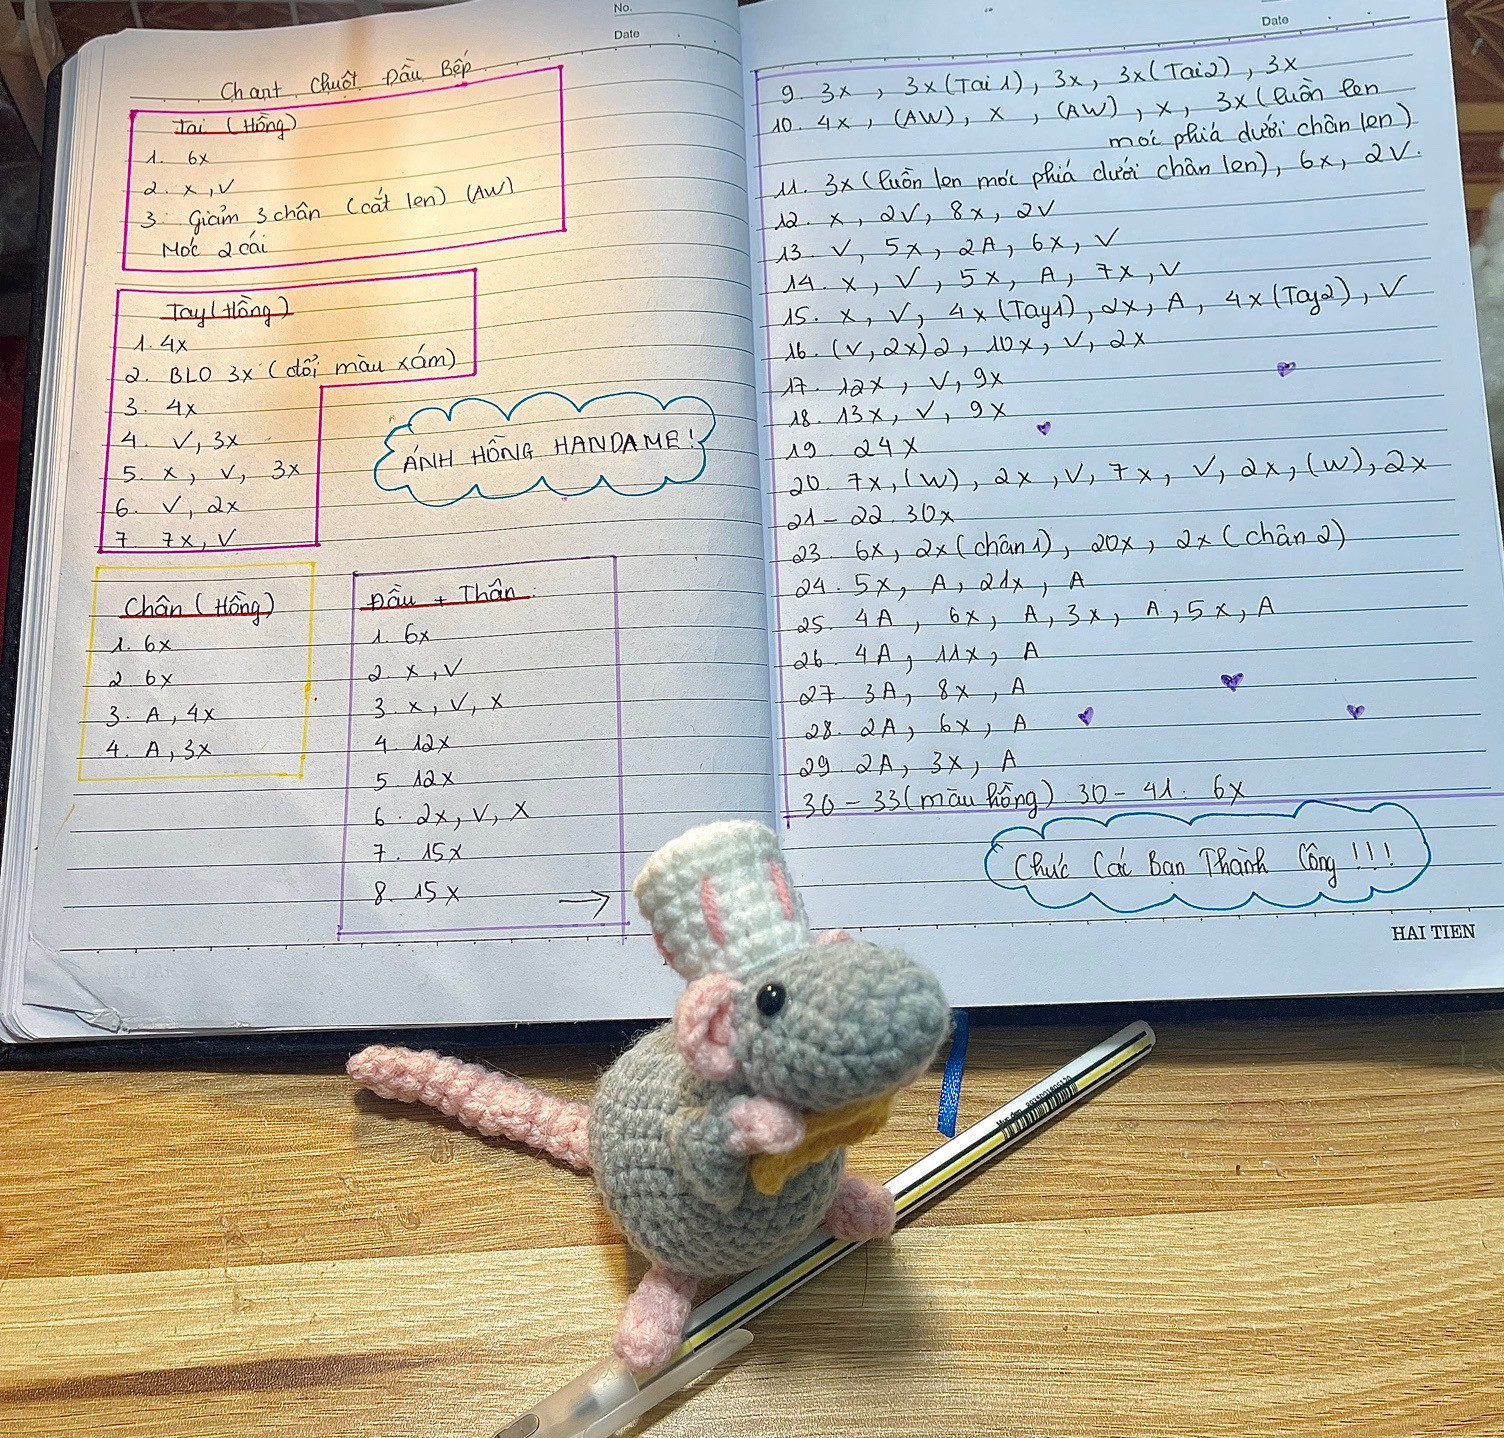 No.
Date
Chart Chuột Đầu Bếp
Tai (Hồng)
1. 6x
2. x, V
3. Giảm 3 chân (cắt len) (AW)
Móc 2 cái
Tay (Hồng)
1. 4x
2. BLO 3x (đổi màu xám)
3. 4x
4. V, 3x
5. x, V, 3x
6. V, 2x
7. 7x, V
ÁNH HỒNG HANDAME!
Chân (Hồng)
1. 6x
2. 6x
3. A, 4x
4. A, 3x
Đầu + Thân:
1. 6x
2. x, V
3. x, V, x
4. 12x
5. 12x
6. 2x, V, x
7. 15x
8. 15x
Date
9. 3x, 3x (Tai 1), 3x, 3x (Tai 2), 3x
10. 4x, (AW), x, (AW), x, 3x (luồn len
móc phiá dưới chân len)
11. 3x (luồn len móc phiá dưới chân len), 6x, 2V.
12. x, 2V, 8x, 2V
13. V, 5x, 2A, 6x, V
14. x, V, 5x, A, 7x, V
15. x, V, 4x (Tay1), 2x, A, 4x (Tay2), V
16. (V, 2x) 2, 10x, V, 2x
17. 12x, V, 9x
18. 13x, V, 9x
19. 24x
20. 7x, (W), 2x, V, 7x, V, 2x, (W), 2x
21 - 22. 30x
23. 6x, 2x (chân 1), 20x, 2x (chân 2)
24. 5x, A, 21x, A
25. 4A, 6x, A, 3x, A, 5x, A
26. 4A, 11x, A
27. 3A, 8x, A
28. 2A, 6x, A
29. 2A, 3x, A
30 - 33 (màu hồng). 30 - 41. 6x
Chúc Các Bạn Thành Công !!!
HAI TIEN